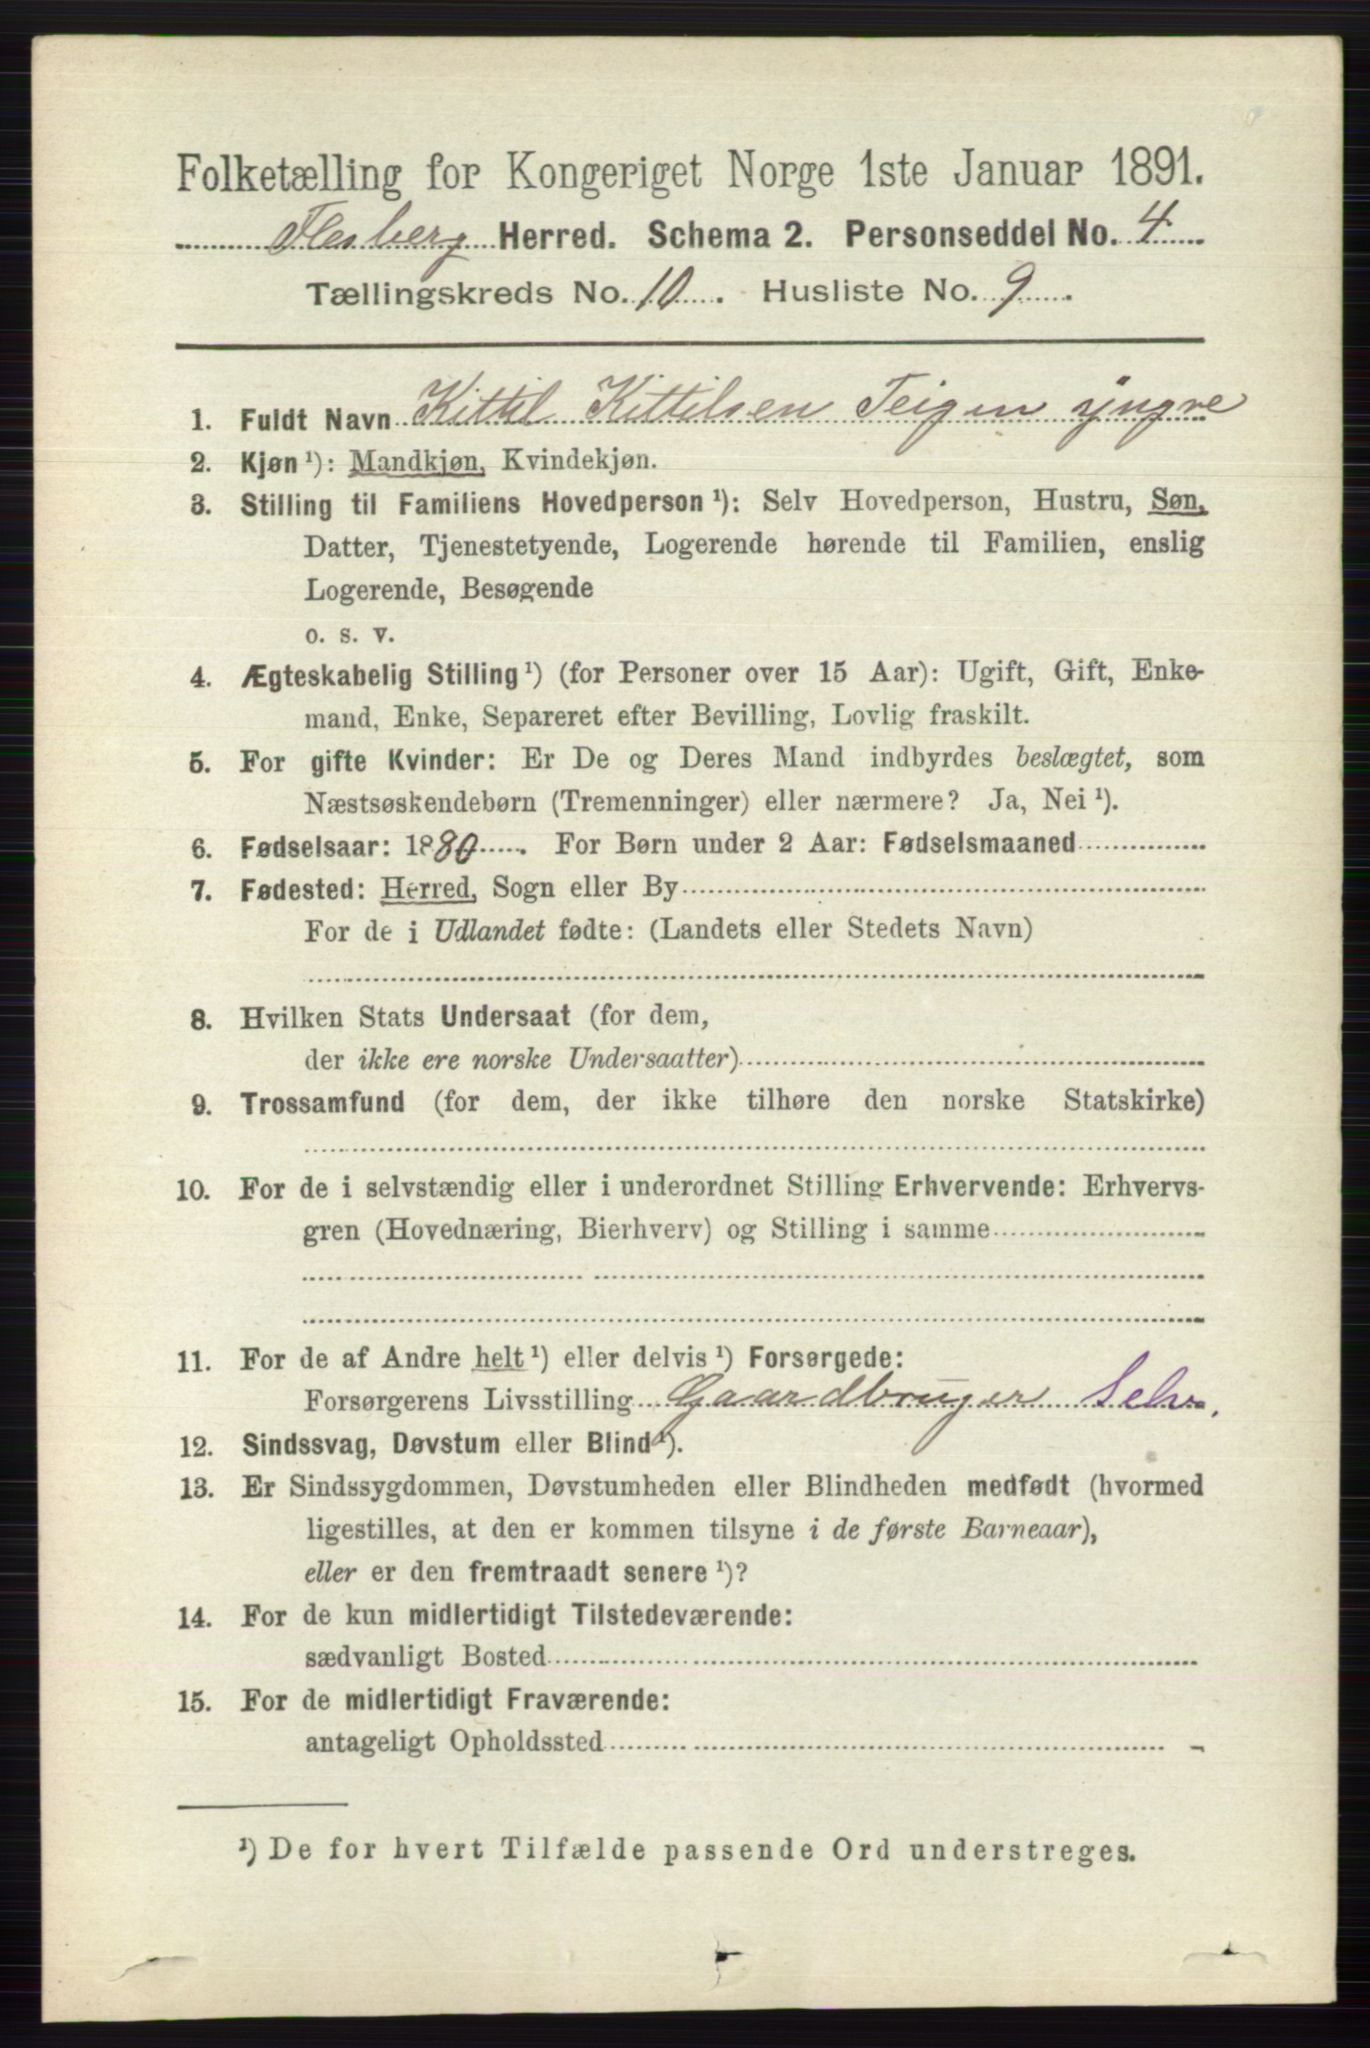 Folketælling for Kongeriget Norge 1ste Januar 1891.
Flesberg Herred. Schema 2. Personseddel No. 4
Tællingskreds No. 10. Husliste No. 9.
1. Fuldt Navn Kittil Kittilsen Teigen yngre
2. Kjøn ¹): Mandkjøn, Kvindekjøn.
3. Stilling til Familiens Hovedperson ¹): Selv Hovedperson, Hustru, Søn,
Datter, Tjenestetyende, Logerende hørende til Familien, enslig
Logerende, Besøgende
o. s. v.
4. Ægteskabelig Stilling ¹) (for Personer over 15 Aar): Ugift, Gift, Enke-
mand, Enke, Separeret efter Bevilling, Lovlig fraskilt.
5. For gifte Kvinder: Er De og Deres Mand indbyrdes beslægtet, som
Næstsøskendebørn (Tremenninger) eller nærmere? Ja, Nei ¹).
6. Fødselsaar: 1880. For Børn under 2 Aar: Fødselsmaaned
7. Fødested: Herred, Sogn eller By
For de i Udlandet fødte: (Landets eller Stedets Navn)
8. Hvilken Stats Undersaat (for dem,
der ikke ere norske Undersaatter)
9. Trossamfund (for dem, der ikke tilhøre den norske Statskirke)
10. For de i selvstændig eller i underordnet Stilling Erhvervende: Erhvervs-
gren (Hovednæring, Bierhverv) og Stilling i samme
11. For de af Andre helt ¹) eller delvis ¹) Forsørgede:
Forsørgerens Livsstilling Gaardbruger Selv.
12. Sindssvag, Døvstum eller Blind ¹).
13. Er Sindssygdommen, Døvstumheden eller Blindheden medfødt (hvormed
ligestilles, at den er kommen tilsyne i de første Barneaar),
eller er den fremtraadt senere ¹)?
14. For de kun midlertidigt Tilstedeværende:
sædvanligt Bosted
15. For de midlertidigt Fraværende:
antageligt Opholdssted
¹) De for hvert Tilfælde passende Ord understreges.